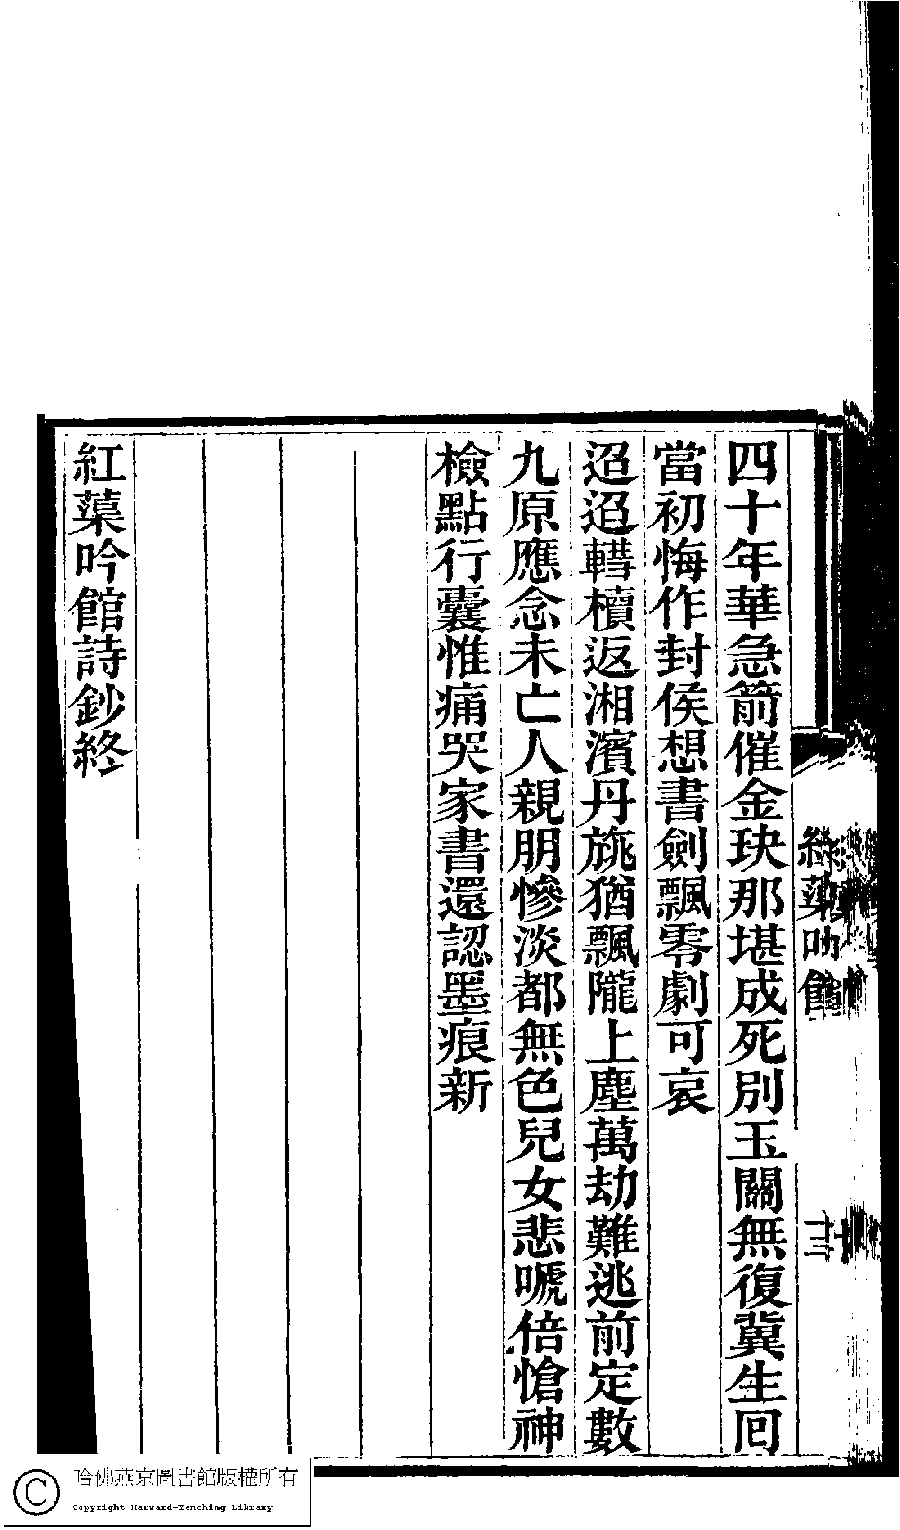 四十年華急箭催金玦那堪成死別玉關無復冀生囘
當初悔作封侯想書劍飄零劇可哀
迢迢轊櫝返湘濱丹旐猶飄隴上塵萬劫難逃前定數
九原應念未亡人親朋慘淡都無色兒女悲嗁倍愴神
檢點行囊惟痛哭家書還認墨痕新
紅蕖吟館詩鈔終
吟館
十三
哈佛燕京圖書館版權所有
Copyright Harvard-Yenching Library